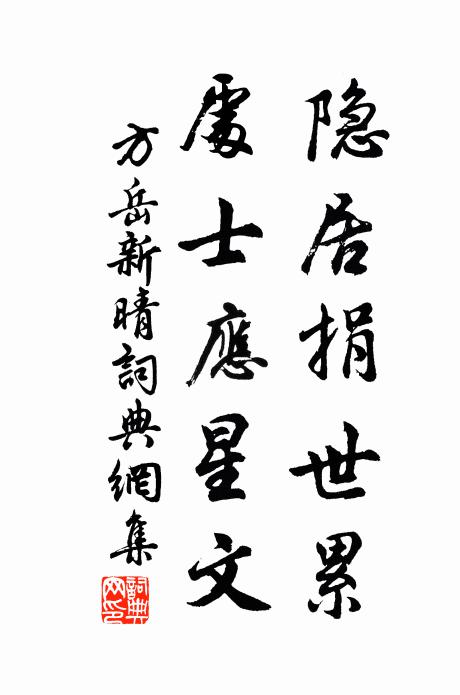 隐居捐世累
處士應星文
方岳新晴詞典網集
詞典网印